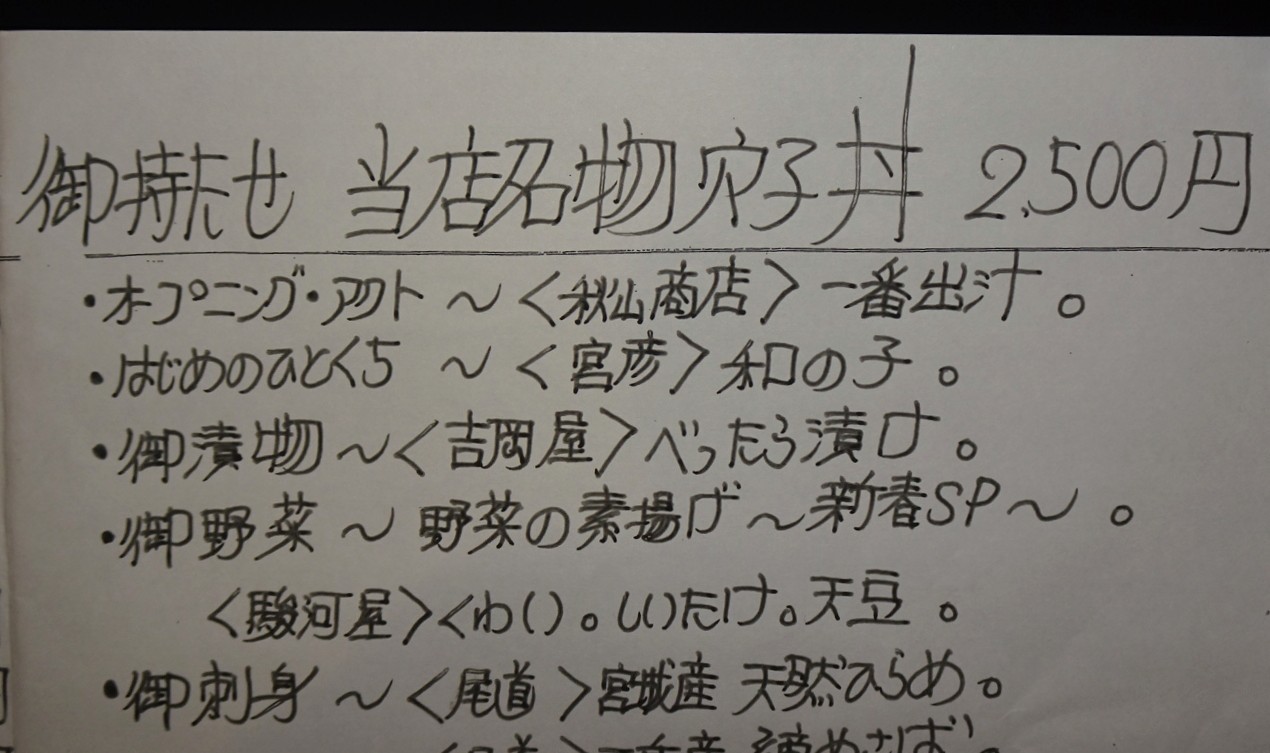 御持たせ 当店名物穴子丼 2,500円
・オープニング・アクト ～〈秋山商店〉一番出汁。
・はじめのひとくち ～〈宮彦〉和の子。
・御漬物～〈吉岡屋〉べったら漬け。
・御野菜～ 野菜の素揚げ～新春SP～。
〈駿河屋〉くわい。しいたけ。天豆。
・御刺身～〈尾道〉宮城産 天然ひらめ。